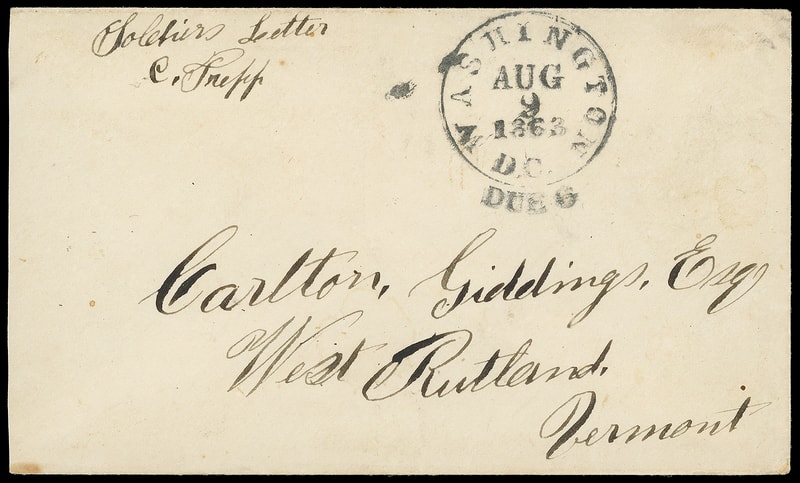 Soldiers Letter
C. Trepp
WASHINGTON
AUG
9
1863
D.C.
DUE 6
Carlton, Giddings, Esq
West Rutland.
Vermont